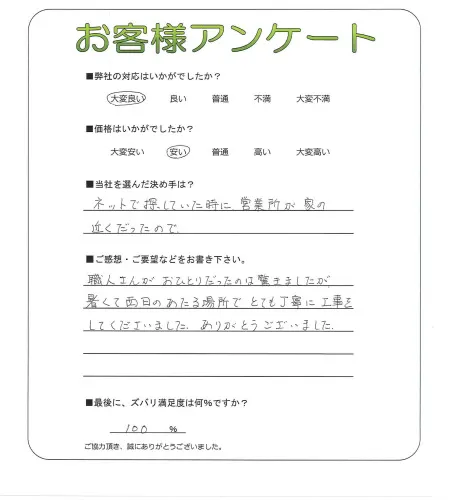 お客様アンケート
■弊社の対応はいかがでしたか？
大変良い 良い 普通 不満 大変不満
■価格はいかがでしたか？
大変安い 安い 普通 高い 大変高い
■当社を選んだ決め手は？
ネットで探していた時に、営業所が家の
近くだったので。
■ご感想・ご要望などをお書き下さい。
職人さんがおひとりだったのは驚きましたが、
暑くて西日のあたる場所でとても丁寧に工事を
してくださいました。ありがとうございました。
■最後に、ズバリ満足度は何%ですか？
100 %
ご協力頂き、誠にありがとうございました。